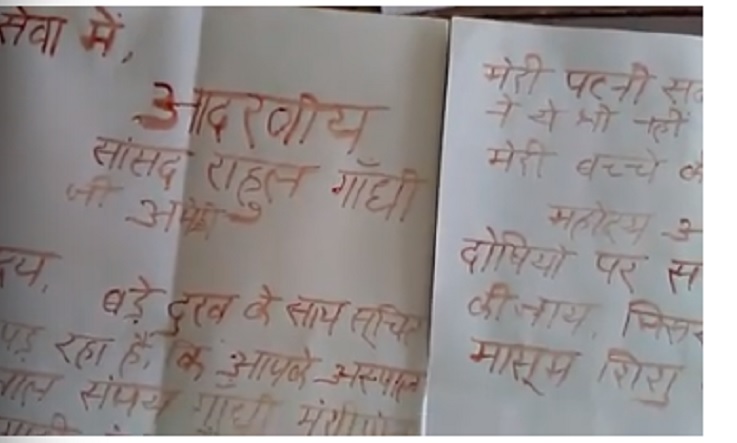 सेवा में,
आदरणीय
सांसद राहुल गाँधी
जी अमेठी
बड़े दुख के साथ सूचित
पड़ रहा है, कि आपके अस्पताल
संजय गाँधी
मेरी पत्नी
ने ये भी नहीं
मेरी बच्चे
महोदय
दोषियों पर स
की जाय, जिस
मासूम शिशु